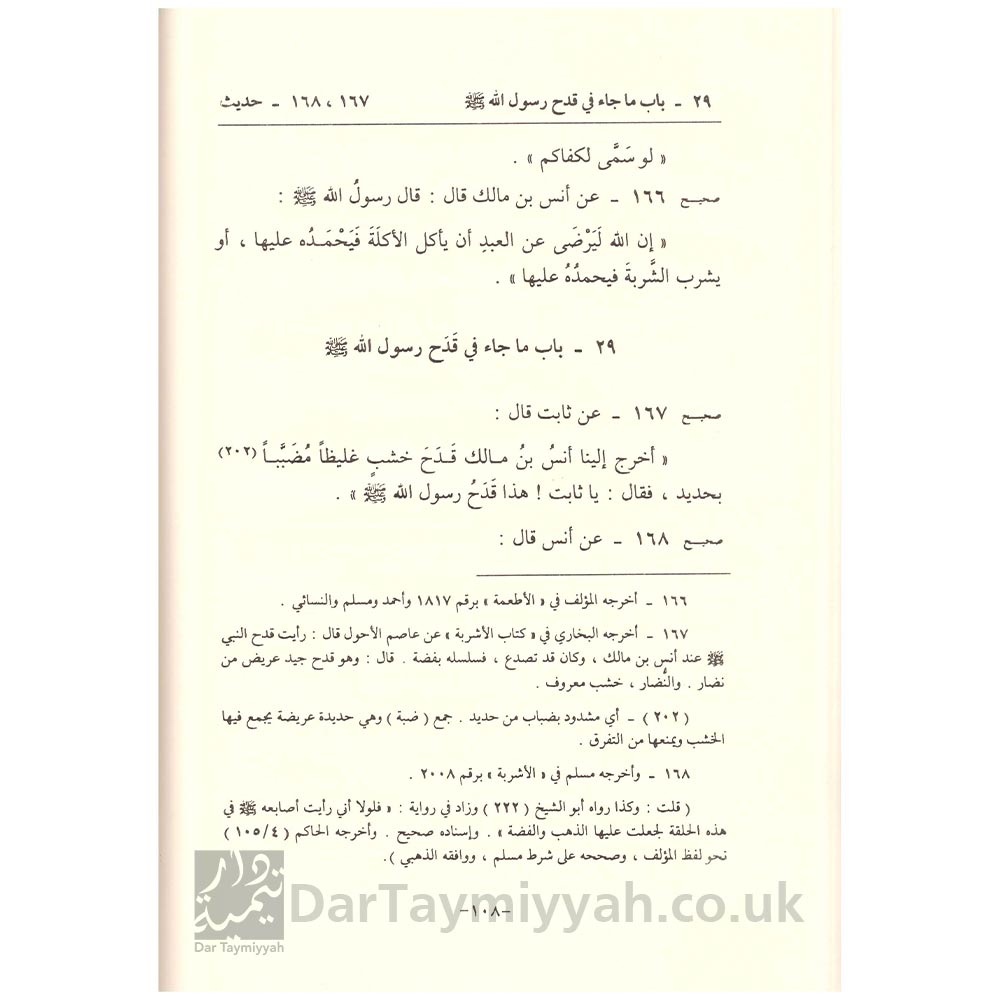 ٢٩ - باب ما جاء في قدح رسول الله ﷺ ١٦٧ ، ١٦٨ - حديث
« لو سَمَّى لكفاكم » .
صحيح ١٦٦ - عن أنس بن مالك قال : قال رسولُ الله ﷺ :
« إن الله لَيَرْضَى عن العبدِ أن يأكل الأكلَةَ فَيَحْمَـدُه عليها ، أو
يشرب الشَّربةَ فيحمدُهُ عليها » .
٢٩ - باب ما جاء في قَدَح رسول الله ﷺ
صحيح ١٦٧ - عن ثابت قال :
« أخرج إلينا أنسُ بنُ مـالك قَـدَحَ خشبٍ غليظاً مُضَبَّبـاً (٢٠٢)
بحديد ، فقال : يا ثابت ! هذا قَدَحُ رسول الله ﷺ » .
صحيح ١٦٨ - عن أنس قال :
١٦٦ - أخرجه المؤلف في « الأطعمة » برقم ١٨١٧ وأحمد ومسلم والنسائي .
١٦٧ - أخرجه البخاري في « كتاب الأشربة » عن عاصم الأحول قال : رأيت قدح النبي
ﷺ عند أنس بن مالك ، وكان قد تصدع ، فسلسله بفضة . قال : وهو قدح جيد عريض من
نضار . والنُّضار ، خشب معروف .
( ٢٠٢ ) - أي مشدود بضباب من حديد . جمع ( ضبة ) وهي حديدة عريضة يجمع فيها
الخشب ويمنعها من التفرق .
١٦٨ - وأخرجه مسلم في « الأشربة » برقم ٢٠٠٨ .
( قلت : وكذا رواه أبو الشيخ ( ٢٢٢ ) وزاد في رواية : « فلولا أني رأيت أصابعه ﷺ في
هذه الحلقة لجعلت عليها الذهب والفضة » . وإسناده صحيح . وأخرجه الحاكم ( ٤/١٠٥ )
نحو لفظ المؤلف ، وصححه على شرط مسلم ، ووافقه الذهبي ).
-١٠٨-
دار تيمية
Dar Taymiyyah
DarTaymiyyah.co.uk